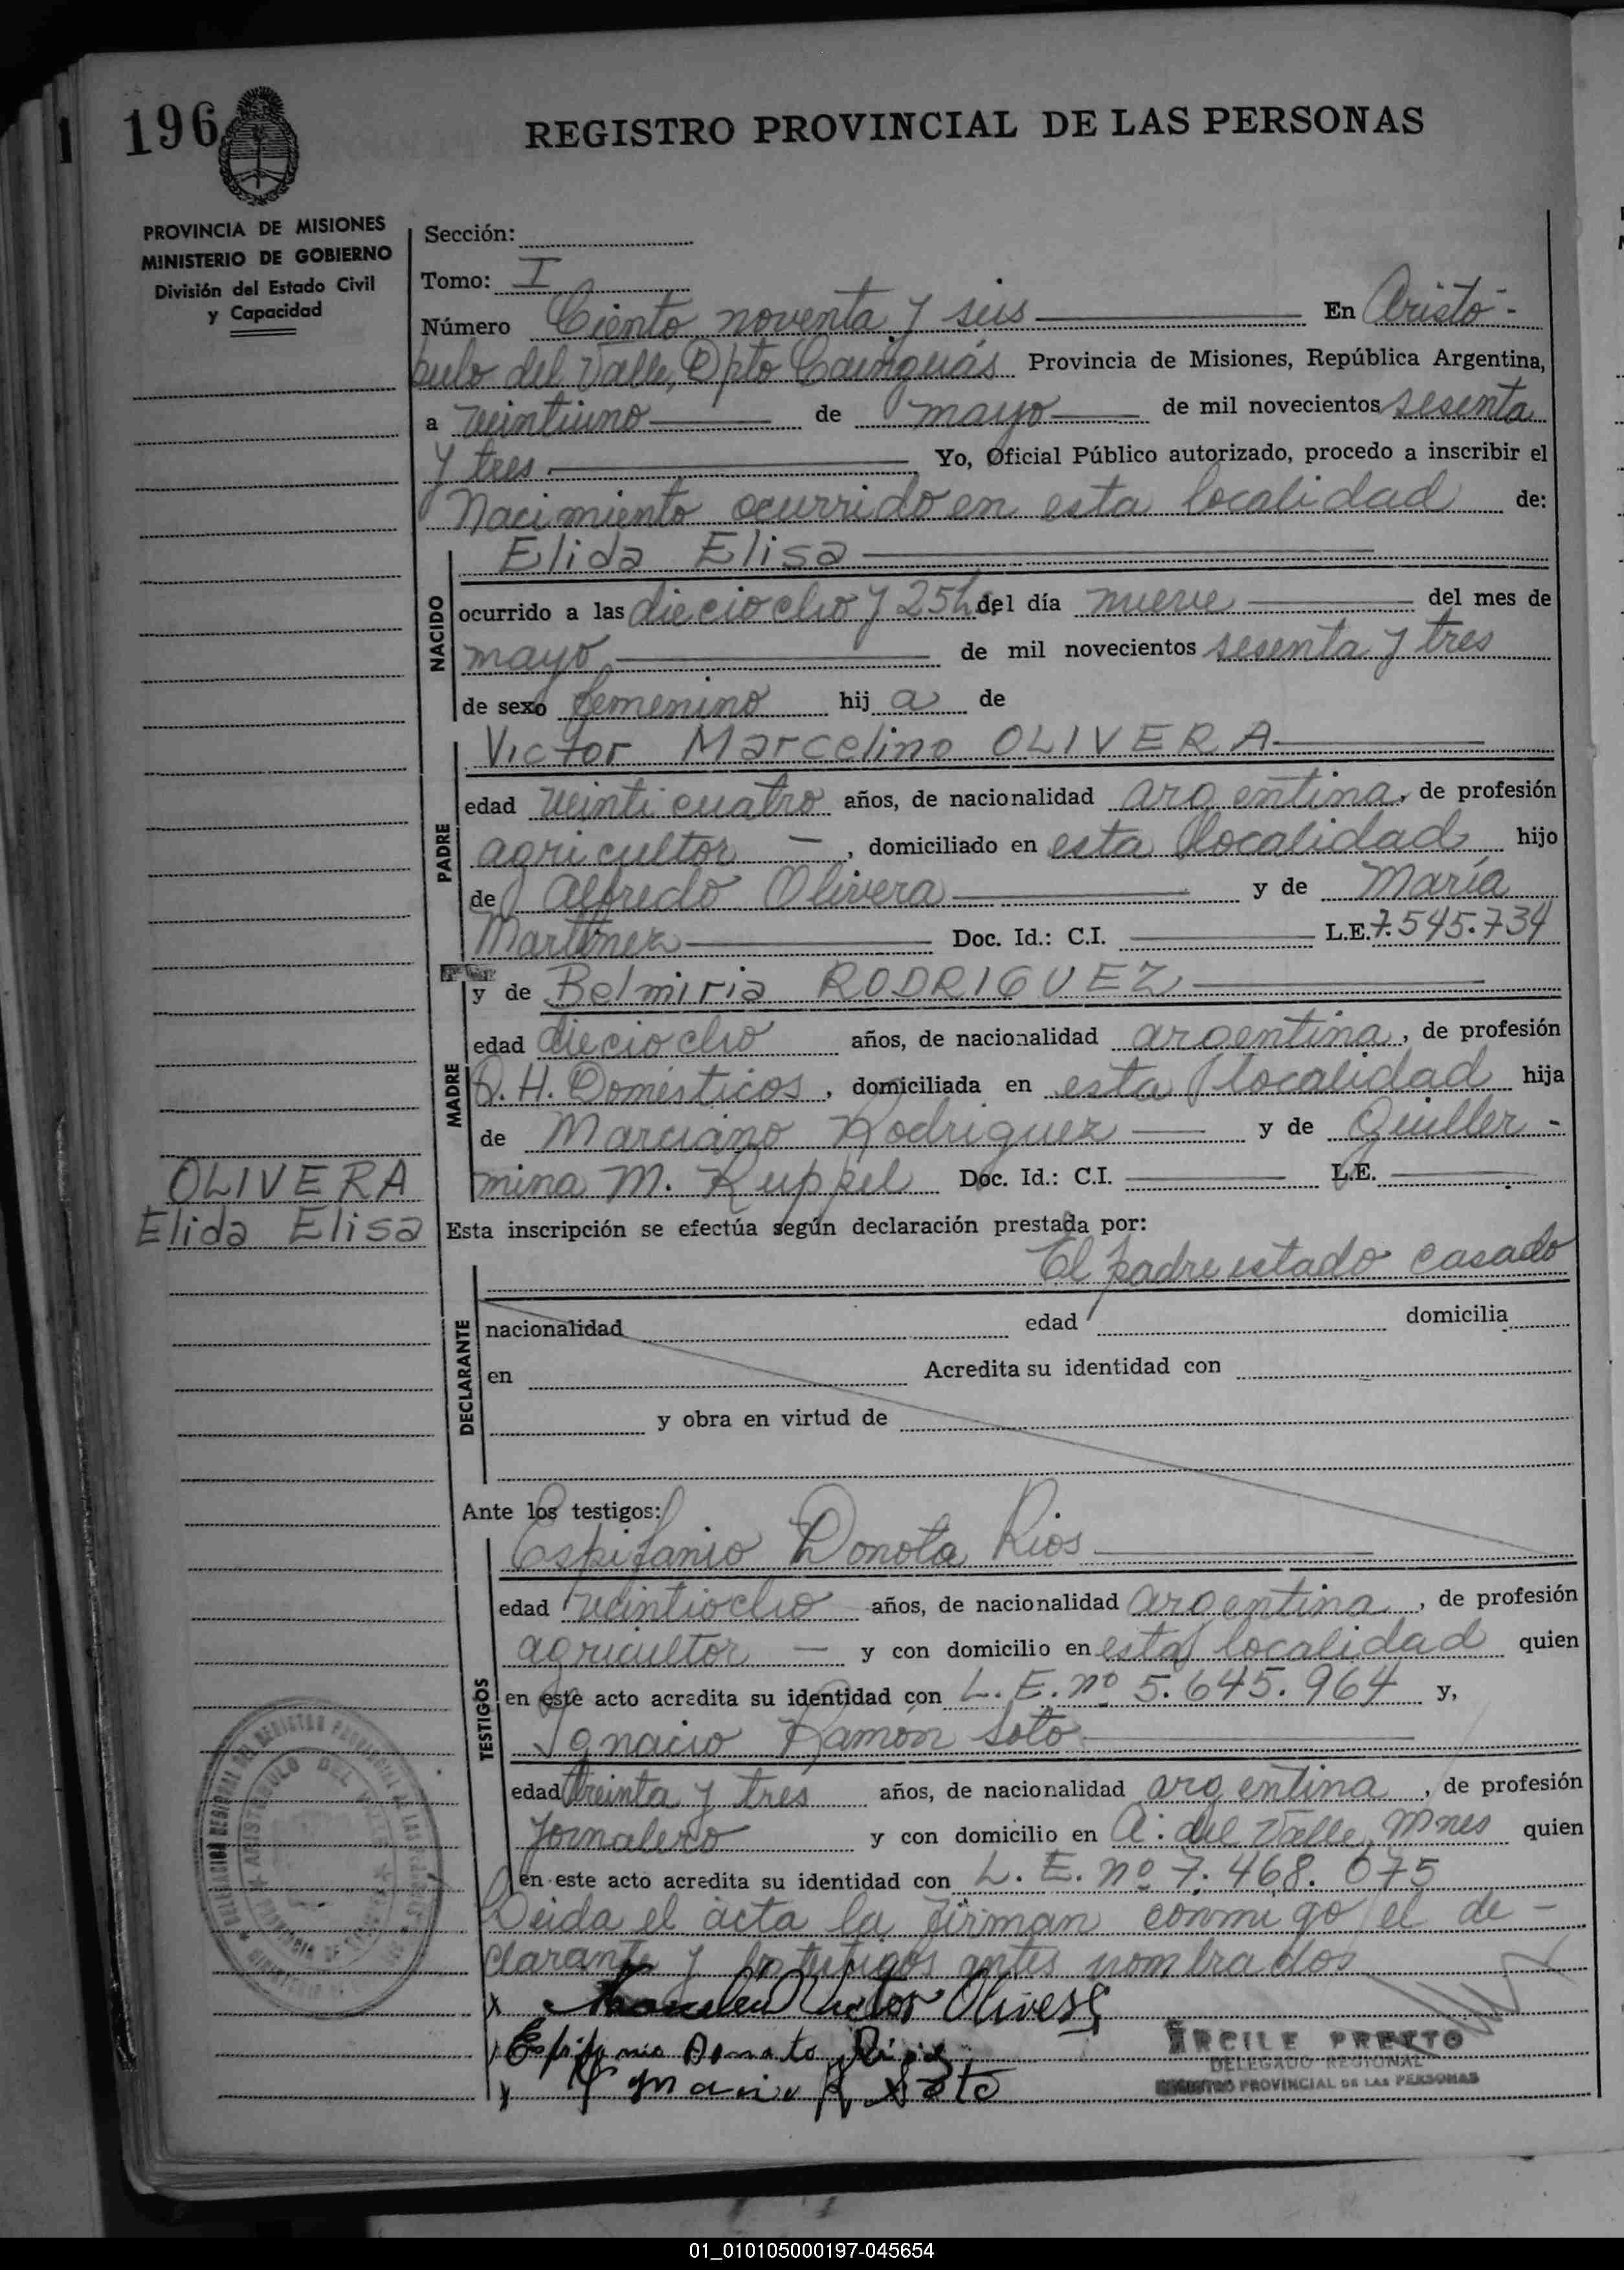 196
REGISTRO PROVINCIAL DE LAS PERSONAS
PROVINCIA DE MISIONES
MINISTERIO DE GOBIERNO
División del Estado Civil
y Capacidad
Sección:
Tomo: I
Número Ciento noventa y seis En Aristó-
bulo del Valle, Dpto Cainguás Provincia de Misiones, República Argentina,
a veintiuno de mayo de mil novecientos sesenta
y tres Yo, Oficial Público autorizado, procedo a inscribir el
Nacimiento ocurrido en esta localidad de:
NACIDO
Elida Elisa
ocurrido a las dieciocho y 25 h del día nueve del mes de
mayo de mil novecientos sesenta y tres
de sexo femenino hij a de
PADRE
Victor Marcelino OLIVERA
edad veinticuatro años, de nacionalidad argentina, de profesión
agricultor, domiciliado en esta localidad hijo
de Alfredo Olivera y de María
Martinez Doc. Id.: C.I. L.E. 7.545.734
MADRE
y de Belmiria RODRIGUEZ
edad dieciocho años, de nacionalidad argentina, de profesión
Q. H. Domésticos, domiciliada en esta localidad hija
de Marciano Rodriguez y de Guiller-
mina M. Kuppel Doc. Id.: C.I. L.E.
OLIVERA
Elida Elisa
Esta inscripción se efectúa según declaración prestada por:
El padre estado casado
DECLARANTE
nacionalidad edad domicilia
en Acredita su identidad con
y obra en virtud de
Ante los testigos:
TESTIGOS
Espifanio Donota Rios
edad veintiocho años, de nacionalidad argentina, de profesión
agricultor y con domicilio en esta localidad quien
en este acto acredita su identidad con L. E. nº 5.645.964 y,
Ignacio Ramón Soto
edad treinta y tres años, de nacionalidad argentina, de profesión
Jornalero y con domicilio en A. del Valle, Mnes quien
en este acto acredita su identidad con L. E. nº 7.468.675
Leida el acta la firman conmigo el de-
clarante y los testigos antes nombrados
Victor Olivera
Espifanio Donato Rios
Ignacio R Soto
ARCILE PRETTO
DELEGADO REGIONAL
REGISTRO PROVINCIAL DE LAS PERSONAS
01_010105000197-045654